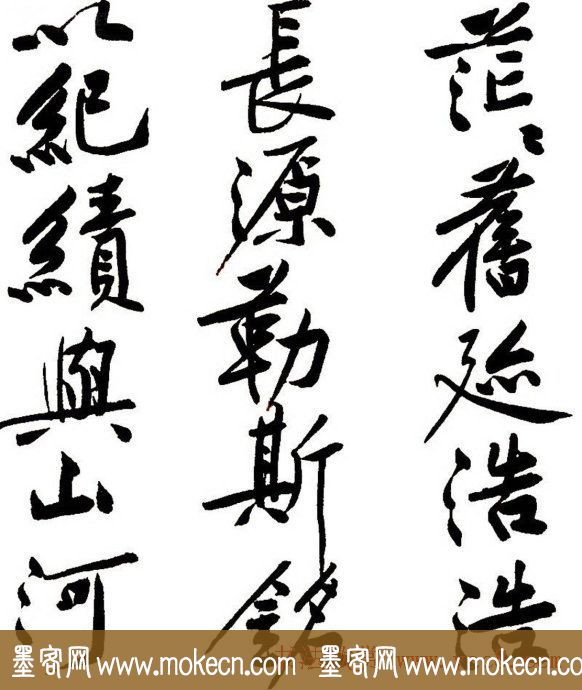 茫々舊迹浩浩
長源勒斯銘
以紀績與山河
墨客网 www.mokecn.com 墨客网 www.mokecn.com 墨客网 www.mokecn.com